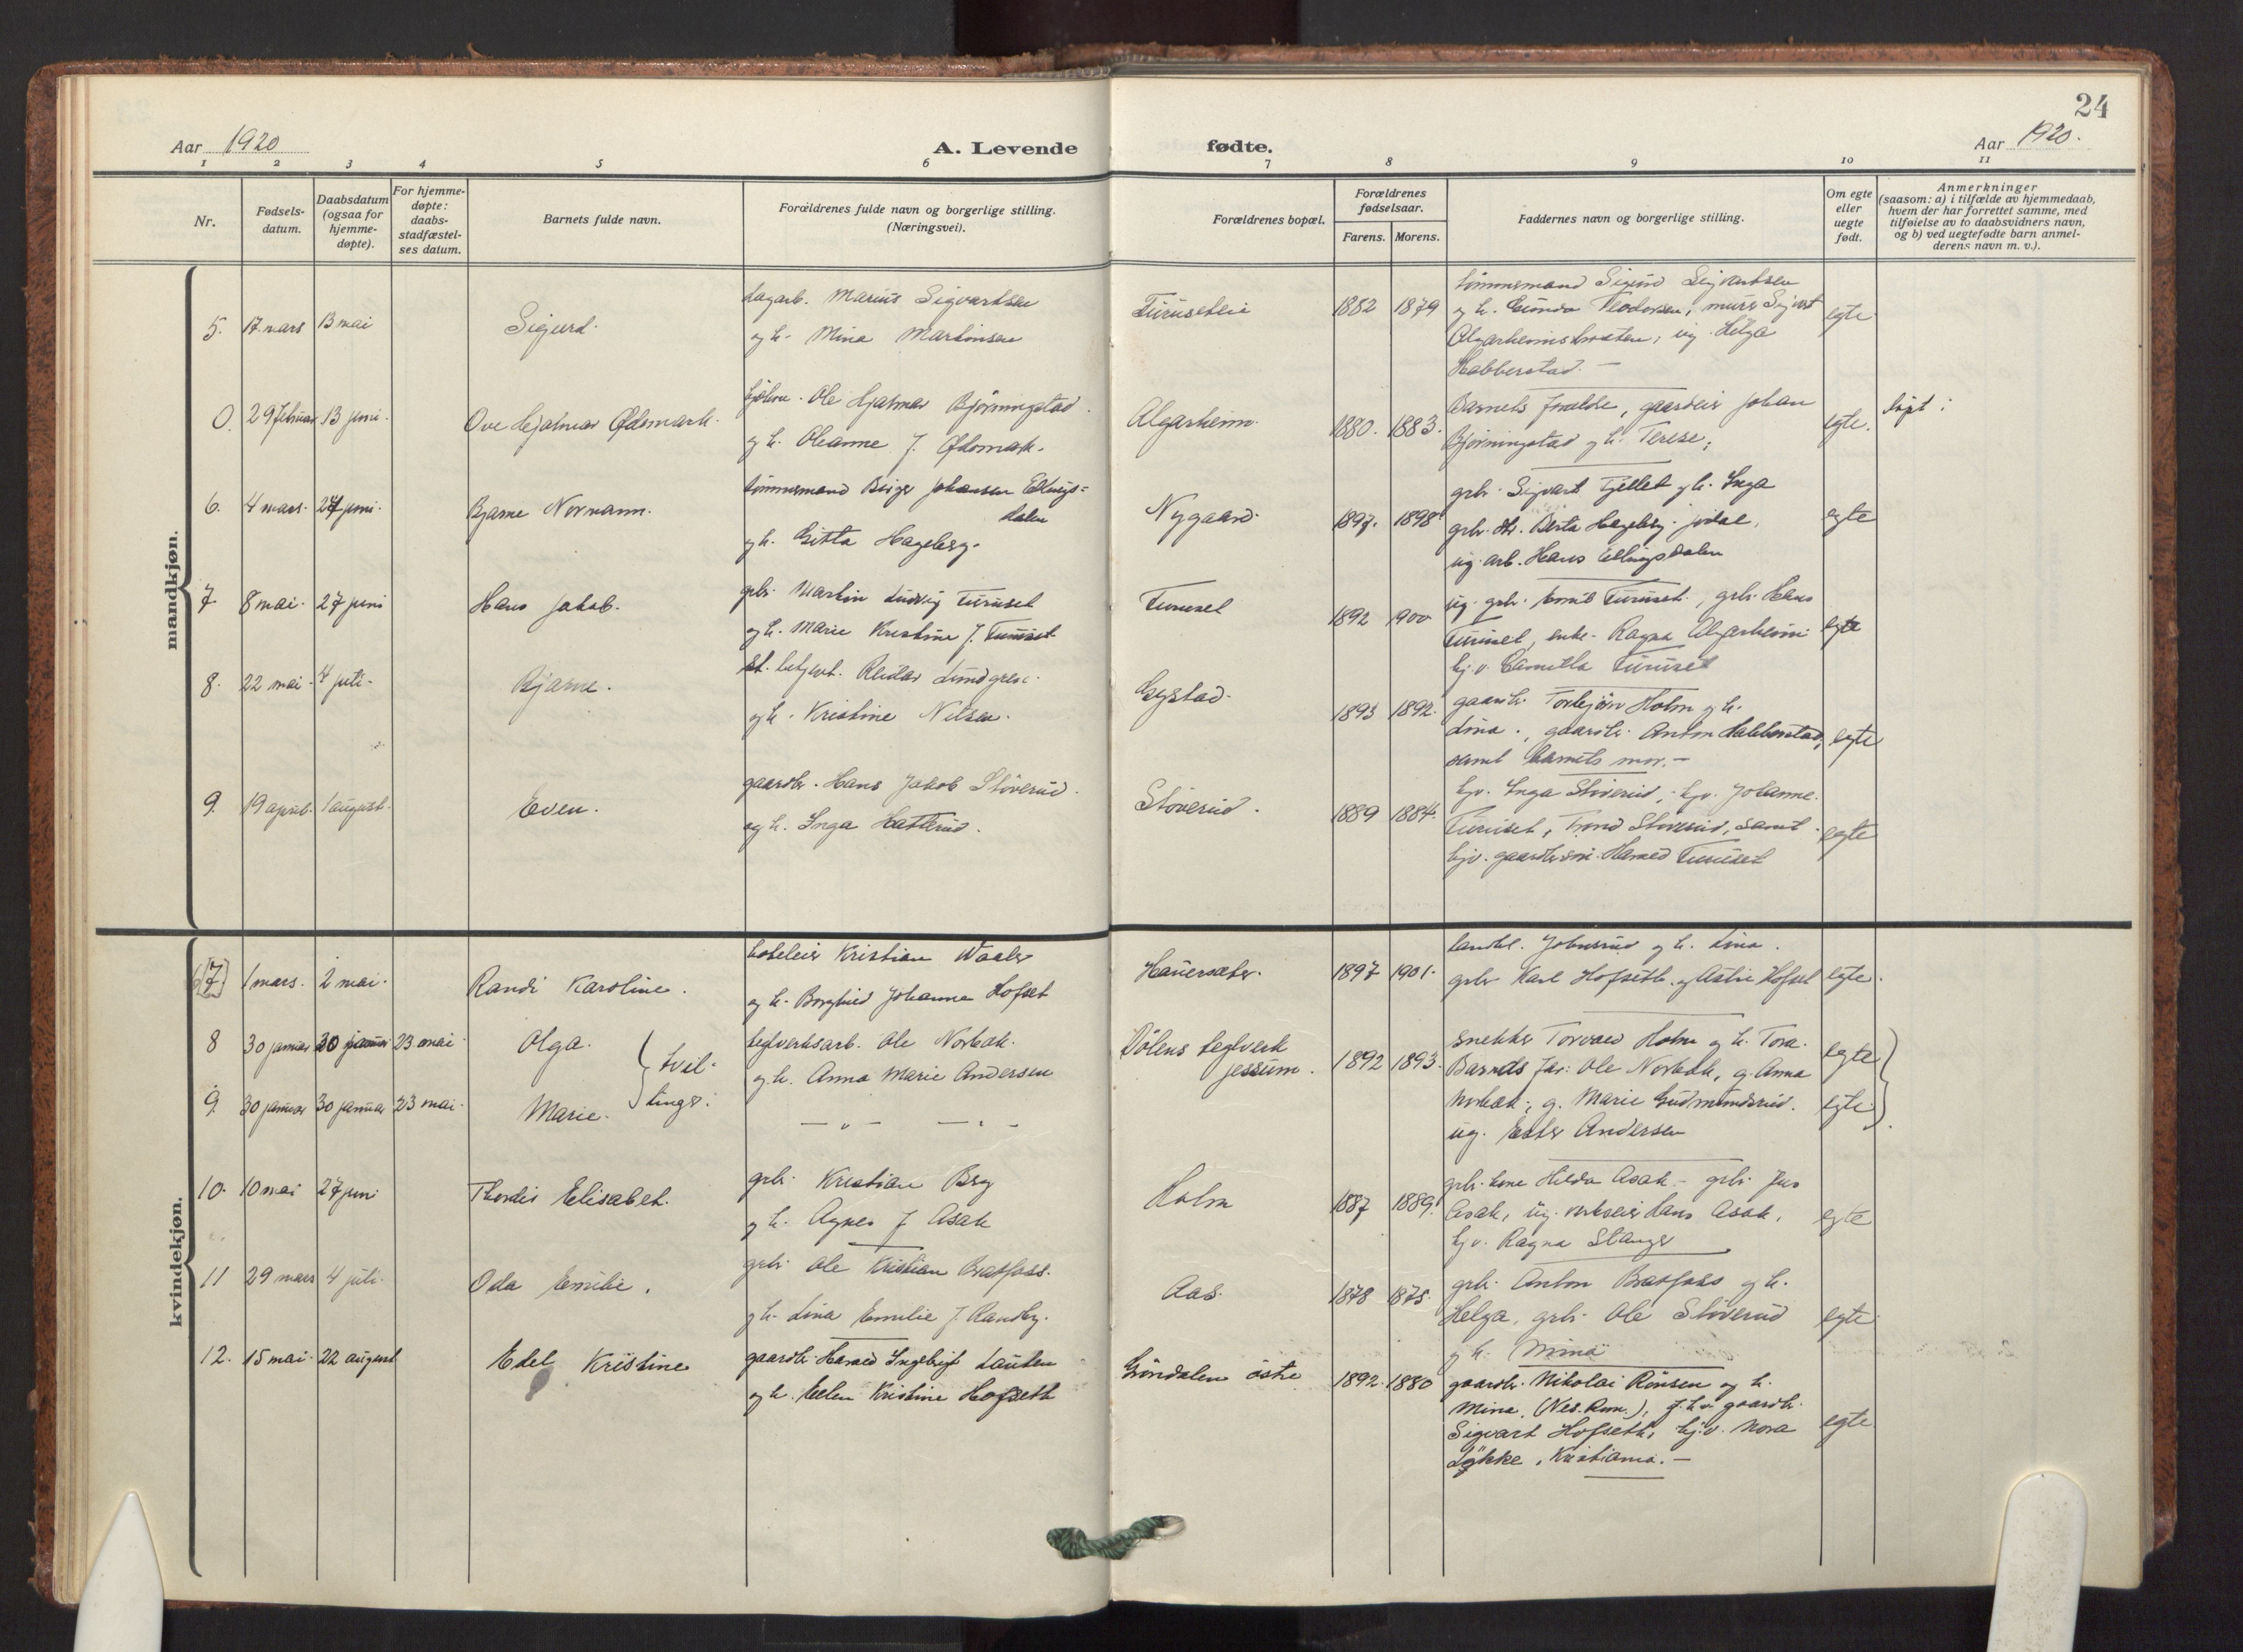 24
Aar 1920
A. Levende
fødte.
Aar 1920.
1 2 3 4 5 6 7 8 9 10 11
Nr.
Fødsels-
datum.
Daabsdatum
(ogsaa for
hjemme-
døpte).
For hjemme-
døpte:
daabs-
stadfæstel-
ses datum.
Barnets fulde navn.
Forældrenes fulde navn og borgerlige stilling.
(Næringsvei).
Forældrenes bopæl.
Forældrenes
fødselsaar.
Farens. Morens.
Faddernes navn og borgerlige stilling.
Om egte
eller
uegte
født.
Anmerkninger
(saasom: a) i tilfælde av hjemmedaab,
hvem der har forrettet samme, med
tilføielse av to daabsvidners navn,
og b) ved uegtefødte barn anmel-
derens navn m. v.).
mandkjøn.
5. 17 mars 13 mai
Sigurd.
dagarb. Marius Sigvartsen
og h. Mina Martinsen
1882 1879
tømmermand Sigurd Sigvartsen
og h. Gunda murer Sigvart
ug. Helga
Habberstad. —
egte
0. 29 februar 13 juni.
Ove Hjalmar Ødemark.
Ole Hjalmar Bjørningstad.
og h. Oleanne f. Ødemark.
Algarheim.
1880. 1883.
Barnets forældre, gaardeier Johan
Bjørningstad og h. Terese;
egte.
døpt i
6. 4 mars. 27 juni.
Bjarne Normann.
tømmermand Birger Johansen Ellings=
dalen
og h. Gitta Hageberg.
Nygaard.
1897. 1898
grbr. Sigvart Tjellet og h. Inga
grbr. Berta Hageberg.
ug. arb. Hans Ellingsdalen
egte
7. 8 mai. 27 juni
Hans Jakob.
grbr. Martin Ludvig Furuset
og h. Marie Kristine f. Furuset
Furuset
1892 1900
ug. grbr. Emil Furuset, grbr. Hans
Furuset, enke. Ragna Algarheim
hj. v. Camilla Furuset
egte
8. 22 mai. 4 juli.
Bjarne.
st. betjent. Reidar Lundgren.
og h. Kristine Nilsen.
Gystad.
1893 1892.
gaardbr. Torbjørn Holm og h.
Lina., gaardbr. Anton Habberstad,
samt barnets mor. —
egte
9. 19 april. 1 august.
Even.
gaardbr. Hans Jakob Støverud.
og h. Inga Hatterud.
Støverud.
1889 1884.
hjv. Inga Støverud, hjv. Johanne
Furuset, Trond Støverud, samt
hjv. gaardbr.søn. Harald Furuset
egte
kvindekjøn.
6[7] 1 mars. 2 mai.
Randi Karoline.
hoteleier Kristian Waaler
og h. Borghild Johanne Hofset
Hauersæter.
1897 1901.
landhl. Johnsrud og h. Lina.
grbr Karl Hofseth. og Astri Hofset
egte.
8 30 januar 30 januar 23 mai.
Olga.
teglverksarb. Ole Norbak.
og h. Anna Marie Andersen
Dølens teglverk
Jessum.
1892 1893.
snekker Torvald Holm og h. Tora.
Barnets far: Ole Norbak, g. Anna
egte
tvil-
linger.
9. 30 januar 30 januar 23 mai.
Marie.
— " — — " —
Norbak; g. Marie Gudmundsrud.
ug. Ester Andersen
egte
10. 10 mai 27 juni
Thordis Elisabet.
grbr. Kristian Berg
og h. Agnes f Asak
Holm
1887 1889.
grbr. kone Hilda Asak – grbr. Jens
Asak, ug. verkseier Hans Asak,
hj v. Ragna Stanger
egte
11 29 mars 4 juli.
Oda Emilie.
grbr. Ole Kristian Bratfoss.
og h. Lina Emilie f. Randby.
Aas.
1878 1875.
grbr. Anton Bratfoss og h.
Helga, grbr. Ole Støverud
og h. Mina
egte
12. 15 mai. 22 august
Edel Kristine
gaardbr. Harald Ingebrigt Lauten
og h. Ellen Kristine Hofseth
Grøndalen østre
1892. 1880
gaardbr. Nikolai Rønsen og h.
Mina. (Nes. Rom.), gaardbr.
Sigvart Hofseth, hj. v. Nora
Løkke, Kristiania. —
egte